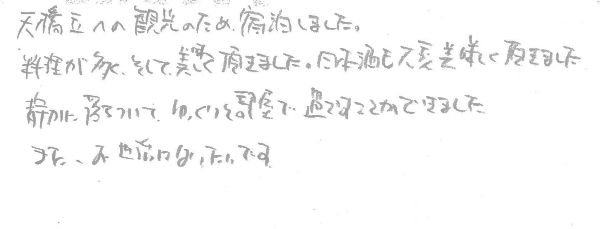 天橋立への観光のため、宿泊しました。
料理が多く、そして、美味しく頂きました。日本酒も大変美味しく頂きました
静かに落ちついて、ゆっくりお部屋で過ごすことができました
また、お世話になりたいです